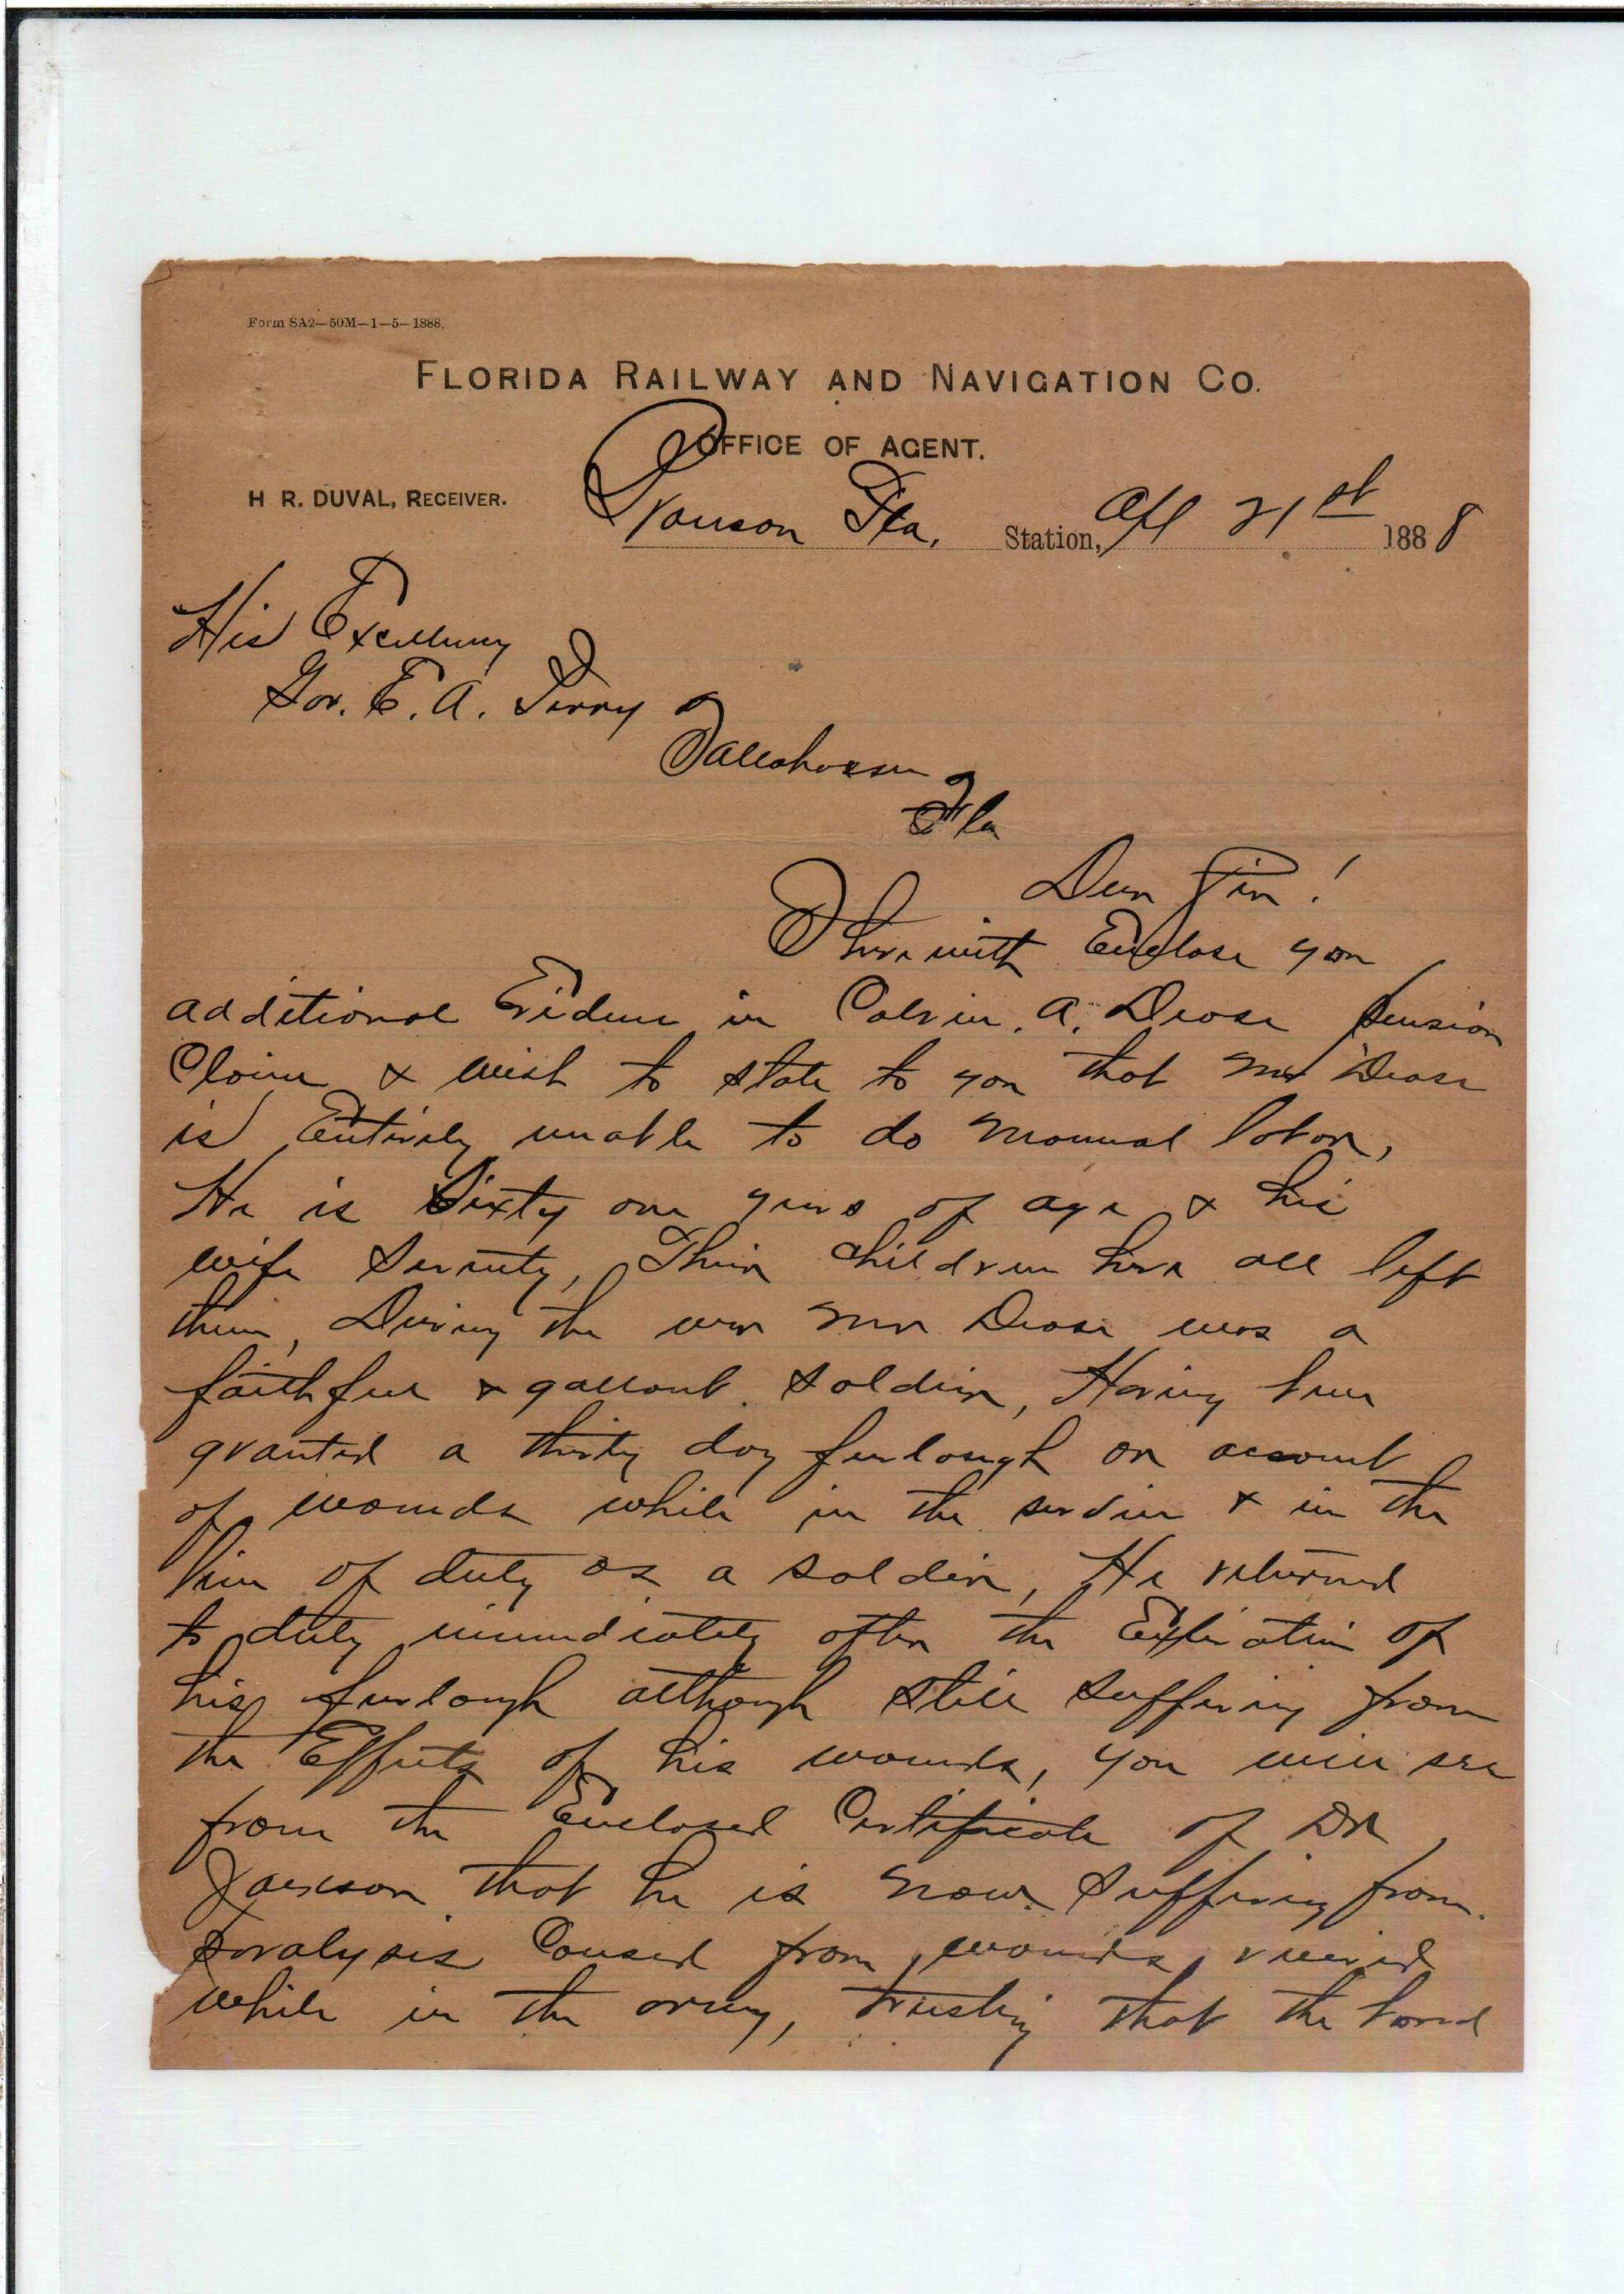 Form SA2—50M—1—5—1888.
FLORIDA RAILWAY AND NAVIGATION CO.
OFFICE OF AGENT.
H R. DUVAL, RECEIVER.
Bronson Fla. Station, Apl 21st 1888
His Excellency
Gov. E. A. Perry
Tallahassee
Fla
Dear Sir!
I herewith Enclose you
additional Evidence in Calvin. A. Dease pension
Claim & wish to state to you that Mr Dease
is Entirely unable to do manual labor,
He is Sixty one years of age & his
wife Seventy, Their children have all left
them, During the war Mr Dease was a
faithful & gallant soldier, Having been
granted a thirty day furlough on account
of wounds while in the service & in the
line of duty as a soldier, He returned
to duty immediately after the Expiration of
his furlough although still suffering from
the Effects of his wounds, you will see
from the Enclosed Certificate of Dr
Jackson that he is now suffering from
paralysis Caused from wounds received
while in the army, trusting that the board